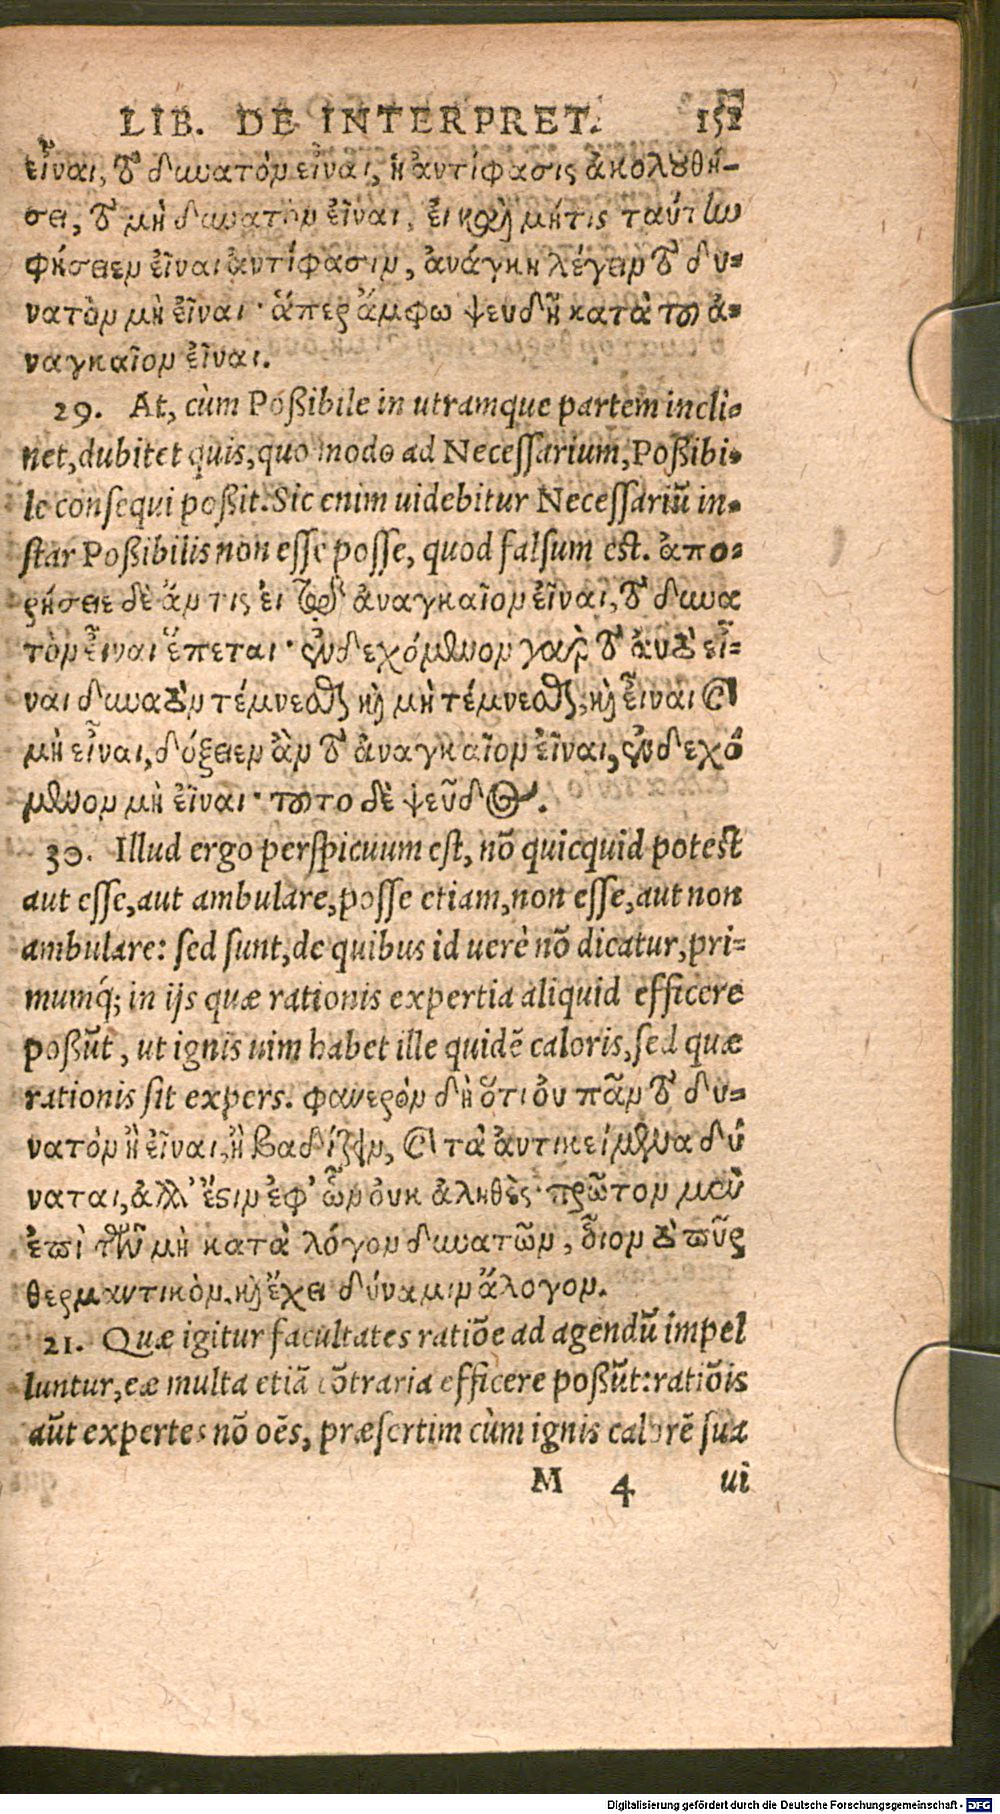 LIB. DE INTERPRET. 152
εἶναι, τὸ δυνατὸν εἶναι, ἡ ἀντίφασις ἀκολουθή-
σει, τὸ μὴ δυνατὸν εἶναι, εἰ καὶ μή τις ταύτην
φήσειεν εἶναι ἀντίφασιν, ἀνάγκη λέγειν τὸ δυ-
νατὸν μὴ εἶναι· ἅπερ ἄμφω ψευδῆ κατὰ τοῦ ἀ-
ναγκαῖον εἶναι.
29. At, cùm Poßibile in utramque partem incli-
net, dubitet quis, quo modo ad Neceſſarium, Poßibi-
le conſequi poßit. Sic enim uidebitur Neceſſariũ in-
ſtar Poßibilis non eſſe poſſe, quod falſum eſt. ἀπο-
ρήσειε δὲ ἄν τις εἰ τῷ ἀναγκαῖον εἶναι, τὸ δυνα
τὸν εἶναι ἕπεται· ἐνδεχόμενον γὰρ τὸ αὐτὸ εἶ-
ναι δυνατὸν τέμνεσθαι καὶ μὴ τέμνεσθαι, καὶ εἶναι καὶ
μὴ εἶναι, δόξειεν ἂν τὸ ἀναγκαῖον εἶναι, ἐνδεχό
μενον μὴ εἶναι· τοῦτο δὲ ψεῦδος.
30. Illud ergo perſpicuum eſt, nõ quicquid poteſt
aut eſſe, aut ambulare, poſſe etiam, non eſſe, aut non
ambulare: ſed ſunt, de quibus id uerè nõ dicatur, pri-
mumq́; in ijs quæ rationis expertia aliquid efficere
poßũt, ut ignis uim habet ille quidẽ caloris, ſed quæ
rationis ſit expers. φανερὸν δὴ ὅτι οὐ πᾶν τὸ δυ-
νατὸν ἢ εἶναι, ἢ βαδίζειν, καὶ τὰ ἀντικείμενα δύ
ναται, ἀλλ’ ἔστιν ἐφ’ ὧν οὐκ ἀληθές· πρῶτον μὲν
ἐπὶ τῶν μὴ κατὰ λόγον δυνατῶν, οἷον τὸ πῦρ
θερμαντικὸν, καὶ ἔχει δύναμιν ἄλογον.
21. Quæ igitur facultates ratiõe ad agendũ impel
luntur, eæ multa etiã cõtraria efficere poßũt: ratiõis
aũt expertes nõ oẽs, præſertim cùm ignis calorẽ ſua
M 4 ui
Digitalisierung gefördert durch die Deutsche Forschungsgemeinschaft - DFG